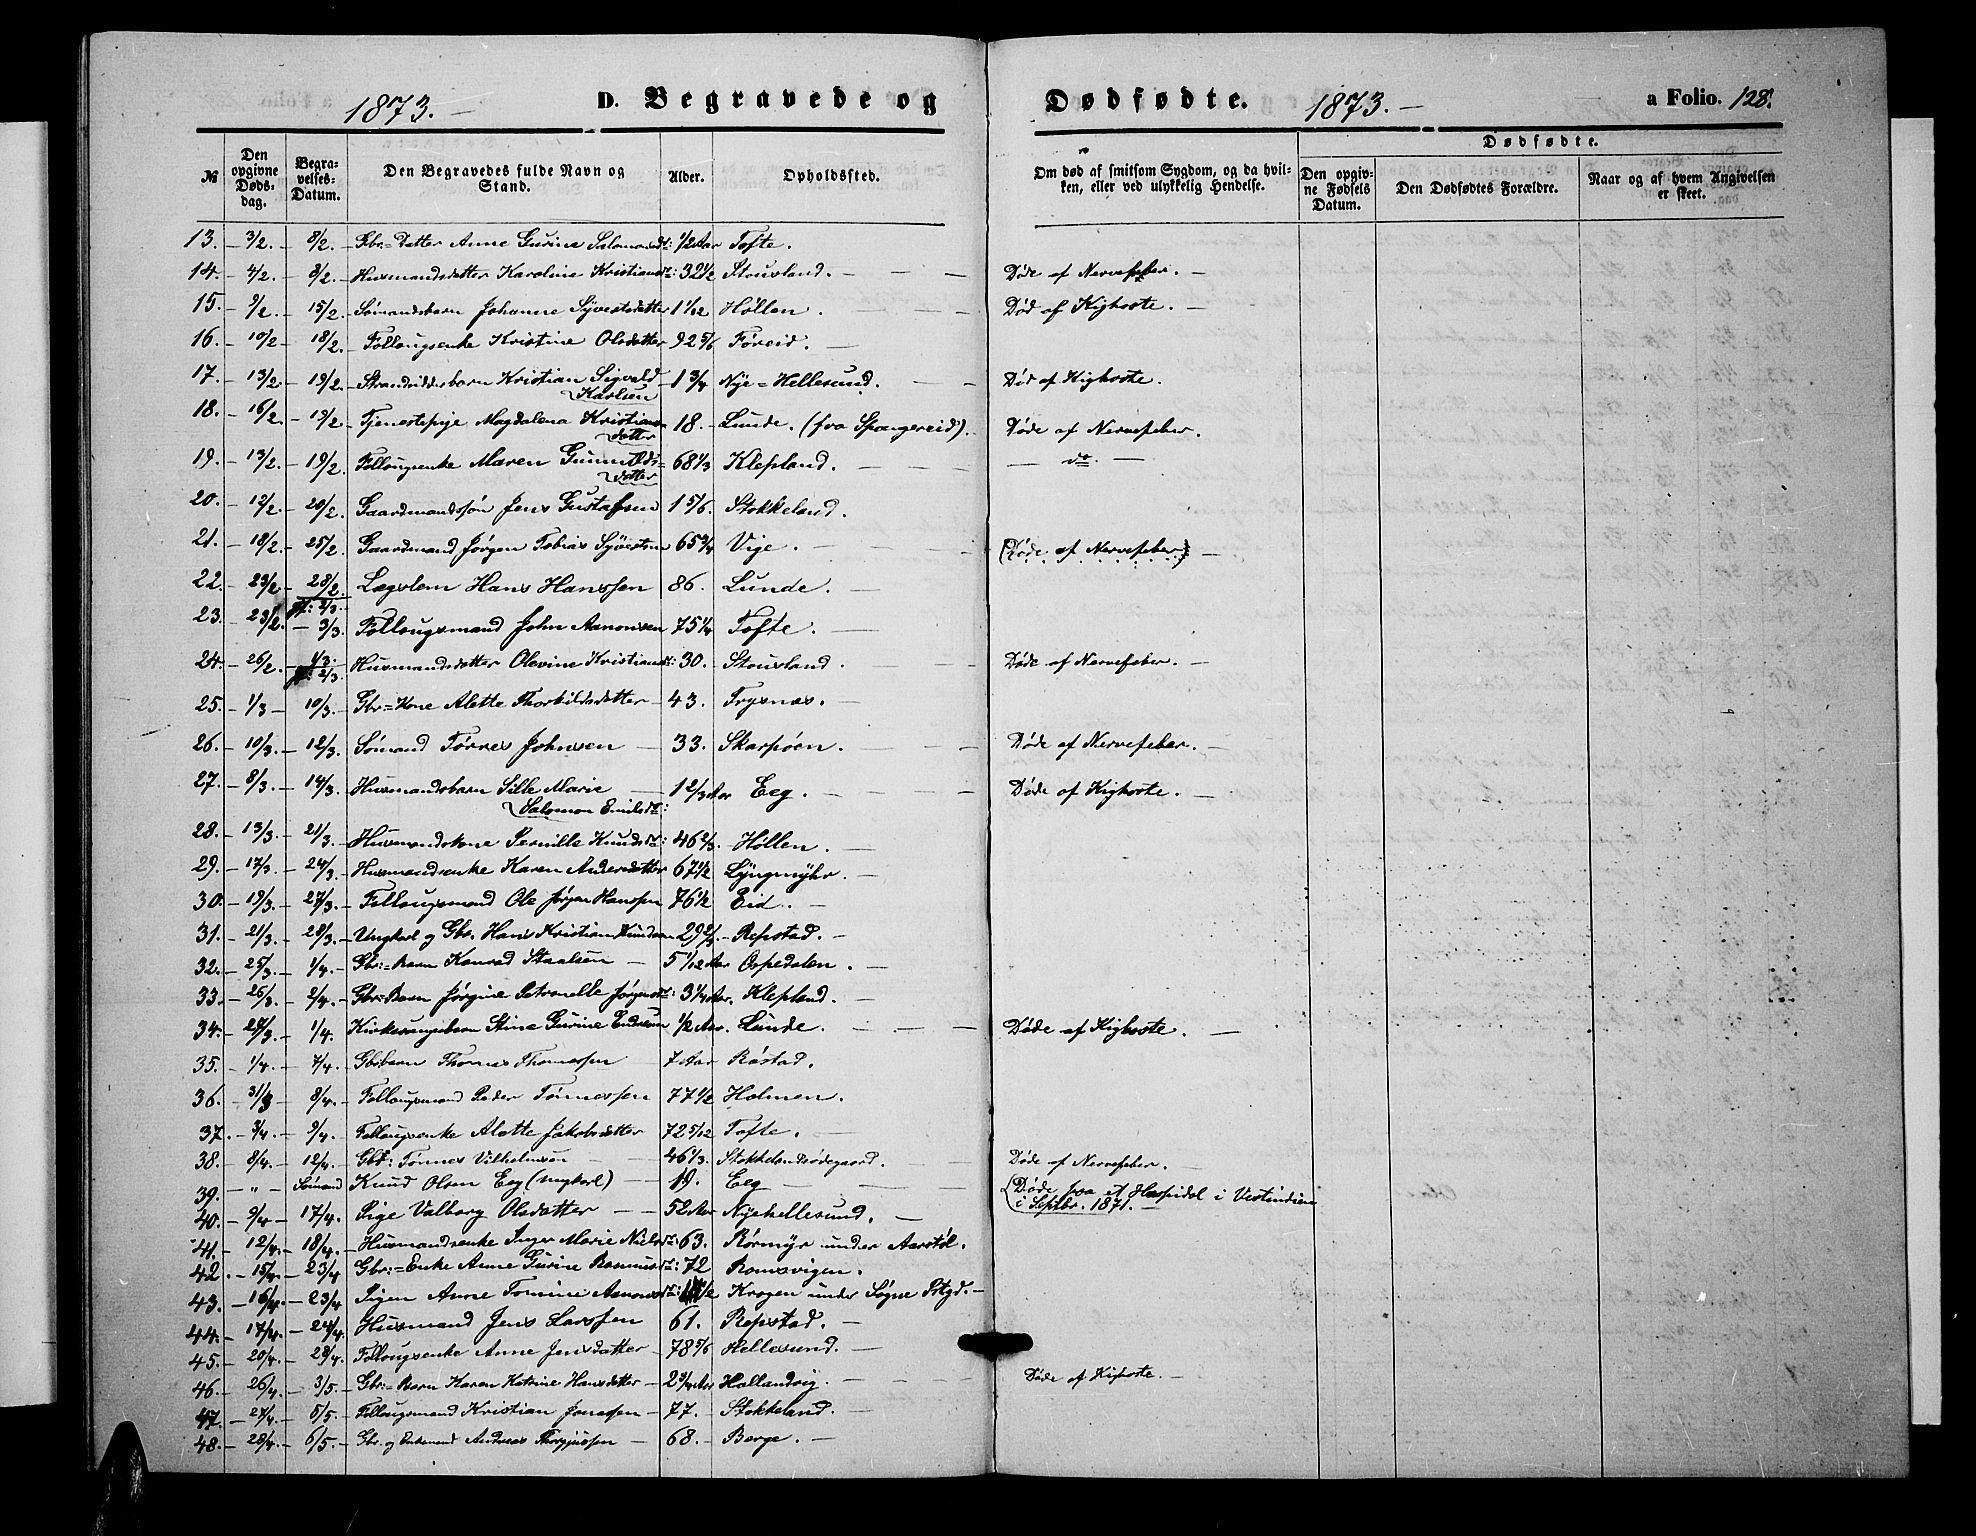 1873. –
D. Begravede og
Dødfødte.
1873. –
a Folio. 128.
№
Den opgivne Dødsdag.
Begravelses-Datum.
Den Begravedes fulde Navn og Stand.
Alder.
Opholdssted.
Om død af smitsom Sygdom, og da hvilken, eller ved ulykkelig Hendelse.
Dødfødte.
Den opgivne Fødsels Datum.
Den Dødfødtes Forældre.
Naar og af hvem Angivelsen er skeet.
13. – 3/2. – 8/2. – Gbr=Datter Anne Gurine Salomonsdt: 1/2 Aar Tofte.
14. – 4/2. – 8/2. – Husmandsdatter Karoline Kristiansdt: 32 1/2 Stousland. – Døde af Nervefeber. –
15. – 9/2 – 15/2. – Sømandsbarn Johanne Syvertsdatter 1 1/12 Høllen. – Død af Kighoste. –
16. – 10/2 – 18/2. – Follougsenke Kristine Olsdatter 92 5/6 Føreid. –
17. – 13/2. – 19/2. – Strandsidderbarn Kristian Sigvald Karlsen – 1 3/4 Nye=Hellesund. – Død af Kighoste.
18. – 16/2. – 19/2. – Tjenestepige Magdalena Kristiansdatter – 18. – Lunde. (fra Spangereid). Døde af Nervefeber.
19. – 13/2. – 19/2. – Follougsenke Maren Gunnuldsdatter – 68 1/3 Klepland. – – do. –
20. – 12/2. – 20/2. – Gaardmandssøn Jens Gustafsen 1 5/6. Stokkeland.
21. – 18/2. – 25/2. – Gaardmand Jørgen Tobias Syvertsen 65 3/4 Vige. – (Døde af Nervefeber) –
22. – 23/2. – 28/2. – Lægslem Hans Hanssen 86. Lunde. –
jf: 2/3.
23. – 23/2. – 3/3. – Follougsmand John Aanonsen 75 1/4 Tofte. –
24. – 26/2. – 1/3. – Husmandsdatter Olevine Kristiansdt: 30. Stousland. – Døde af Nervefeber. –
jf: 2/3.
25. – 1/3 – 10/3. – Gbr=Kone Alette Thorkildsdatter – 43. Trysnes. –
26. – 10/3. – 12/3. – Sømand Tørres Johnsen – 33. Skarpøen. – Døde af Nervefeber. –
27. – 8/3. – 14/3. – Husmandsbarn Sille Marie Salomon Emilsdt: – 1 2/3 Aar Eeg. – Døde af Kighoste. –
28. – 13/3. – 21/3. – Husmandskone Pernille Knudsdt: 46 2/3. Høllen. –
29. – 17/3. – 24/3. – Husmandsenke Karen Andersdatter 67 1/2 Lyngmyhr. –
30. – 19/3. – 27/3. – Follougsmand Ole Jørgen Hanssen 76 1/2 Eid. –
31. – 21/3. – 28/3. – Ungkarl og Gbr. Hans Kristian Knudsen 29 2/3. – Repstad. –
32. – 25/3. – 1/4. – Gbr:=Barn Konrad Staalsen – 5 1/12 Aar Ospedalen. –
33. – 26/3. – 2/4. – Gbr=Barn Jørgine Petronelle Jørgensdt: 3 1/4 Aar. Klepland. –
34. – 27/3. – 1/4. – Kirkesangerbarn Stine Gurine Endresen 1/2 Aar. Lunde. – Døde af Kighoste. –
35. – 1/4. – 7/4. – Gbr:barn Thomas Thomassen 7 Aar Røstad.
36. – 31/3 – 8/4. – Follougsmand Peder Tønnessen 77 1/2 Holmen. –
37. – 3/4. – 9/4. – Follougsenke Alette Jakobsdatter 72 5/12 Tofte. –
38. – 8/4. – 12/4. – Gbr: Tønnes Vilhelmsen – 46 1/3. Stokkelandsødegaard. Døde af Nervefeber. –
39. – „ – Sømand Knud Olsen Eeg (ungkarl) – 19. Eeg – (Døde paa et Hospidal i Vestindien i Septbr. 1871. –
40. – 9/4 – 17/4. – Pige Valborg Olsdatter – 52 Aar Nyehellesund. –
41. – 12/4. – 18/4. – Husmandsenke Inger Marie Nielsdt: 63. Rørmyr under Aarstøl.
42. – 15/4. – 23/4 – Gbr:=Enke Anne Gurine Rasmusdt: 72 Romsvigen.
43. – 16/4. – 23/4 – Pigen Anne Tomine Aanonsdt: 1/2 Kragen under Søgne Prtgd. –
44. – 17/4. – 24/4. – Husmand Jens Larssen 61. Repstad. –
45. – 20/4. – 28/4. – Follougsenke Anne Jensdatter – 78 5/6 Hellesund. –
46. – 26/4. – 3/5. – Gbr:=Barn Karen Katrine Hansdatter – 2 3/4 Aar Hallandvig. – Døde af Kighoste. –
47. – 27/4. – 5/5. – Follougsmand Kristian Jonassen – 77. – Stokkeland. –
48. – 28/4. – 6/5. – Gbr. og Enkemand Andreas Thorjussen – 68. – Berge. –